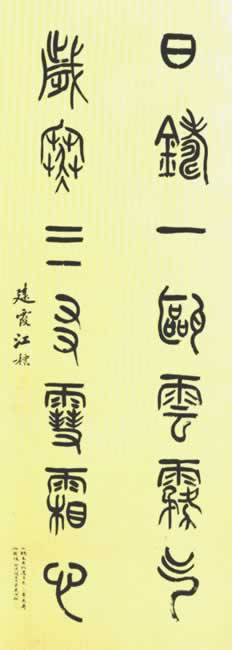 日鑄一甌雲霧气
歲寒三友雪霜心
建霞江標